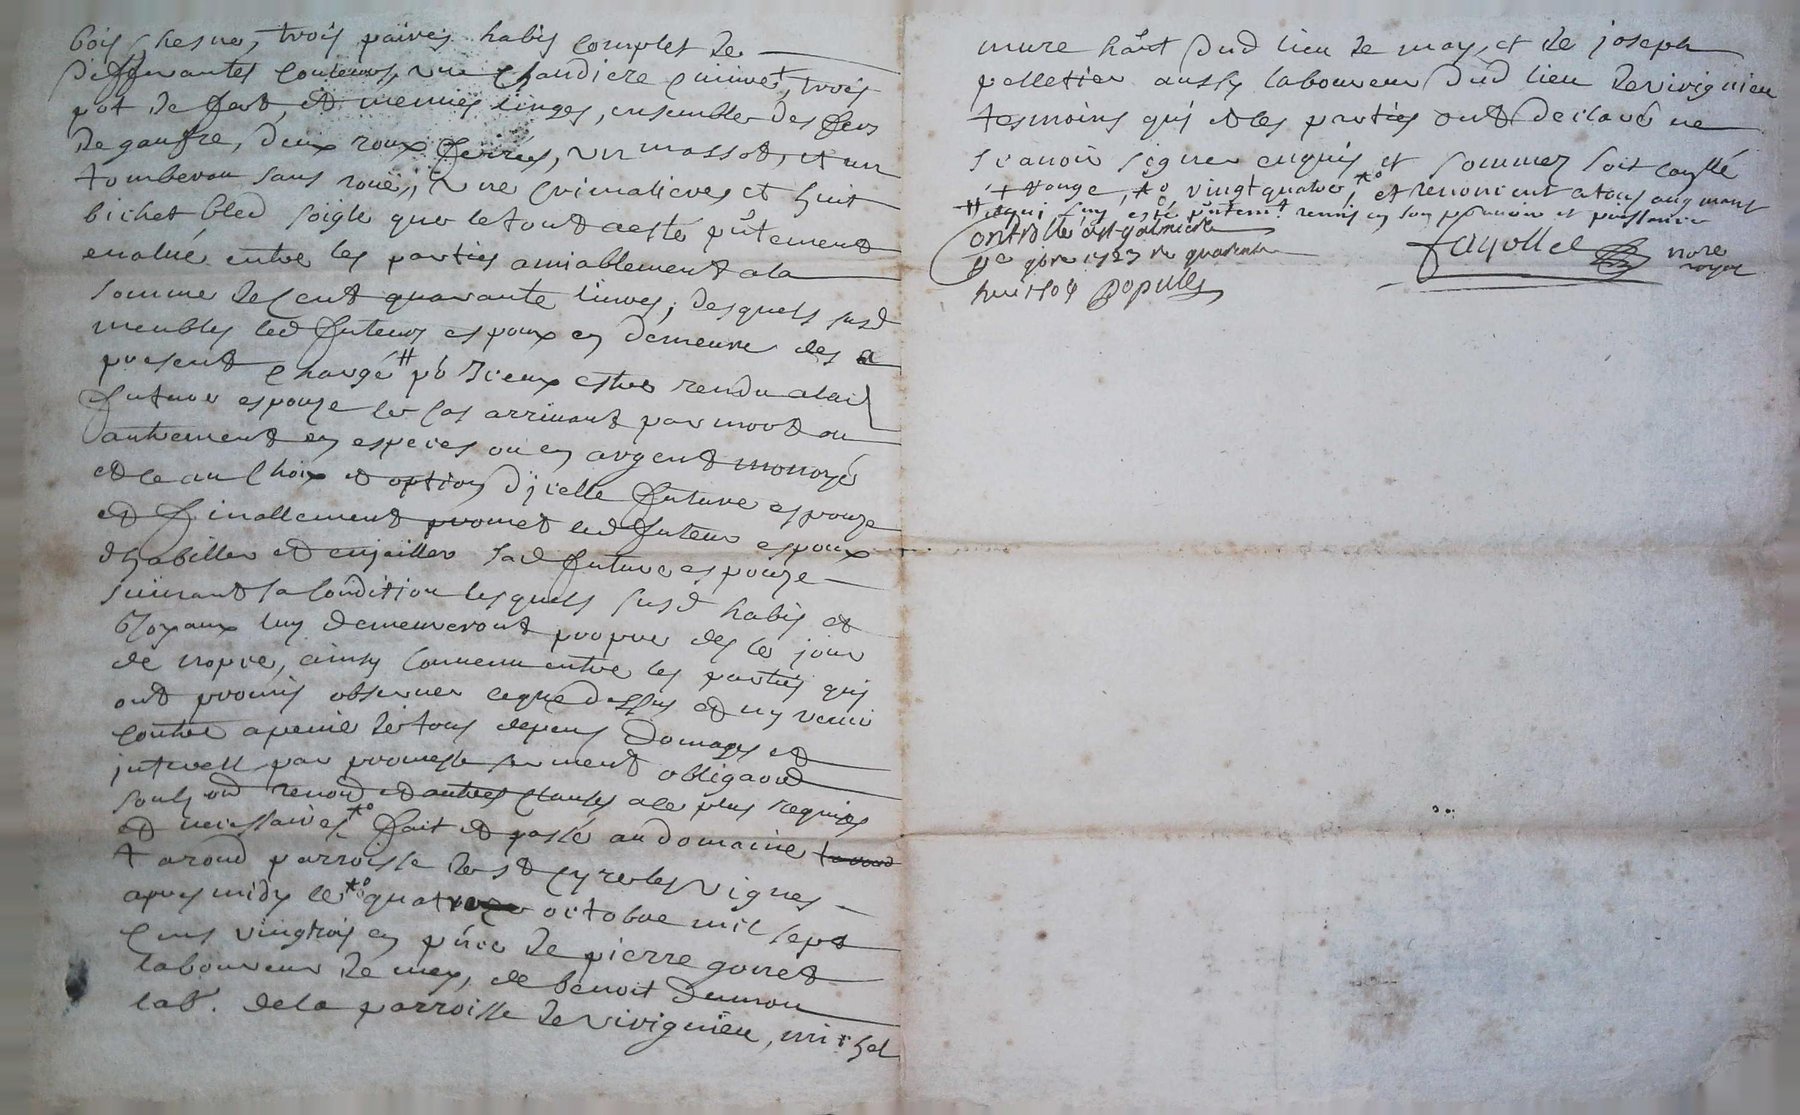 bois chesne, trois paires habis complet de
differantes couleurs, une chaudiere cuivre +, trois
pot de fert, et menües linges, ensembles des fers
de gaufre, deux roux ferrés, un massot, et un
tombereau sans roüe, une crimalieres et huit
bichet bled soigle que le tout a esté pñtement
evalué entre les parties amiablement a la
somme de cent quarante livres, desquels susd
meubles led futeur espoux en demeure des a
present chargé # pr iceux estre rendu a lad
future espouze le cas arrivant par mort ou
autrement en especes ou en argent monoyé
et ce au choix et option d'jcelle future espouze
et finallement promet led futeur espoux
d'habiller et enjoüeller sad future espouze
suivant sa condition lesquels susd habis et
bjoyaux luy demeureront propre des le jour
de nopce, ainsy convenu entre les parties quj
ont promis observer ce que dessus et ny venir
contre a peine de tous depens domages et
jnterest par promesse serment obligaõns
soubs ons renons et autres clauses a ce plus requises
et necessaires *° fait et passé au domaine
tarond parroisse de st cyre les vignes
apres midy le *° quatre octobre mil sept
cens vingtrois en pñce de pierre gonet
laboureur de mey, de benoit dumon
labr. de la parroisse de virignieu, michel
mure hãnt dud lieu de mey, et de joseph
pelletier aussy laboureur dud lieu de virignieu
tesmoins quj et les parties ont declaré ne
scavoir signer enquis et sommez soit
+ rouge, *° vingt quatre, *° et renoncent a tous augment
# pñtemt remis en son pouvoir et puissance
controllé a st galmier le
9bre 1723 re quarente
huit sols
fayolle nore
royal